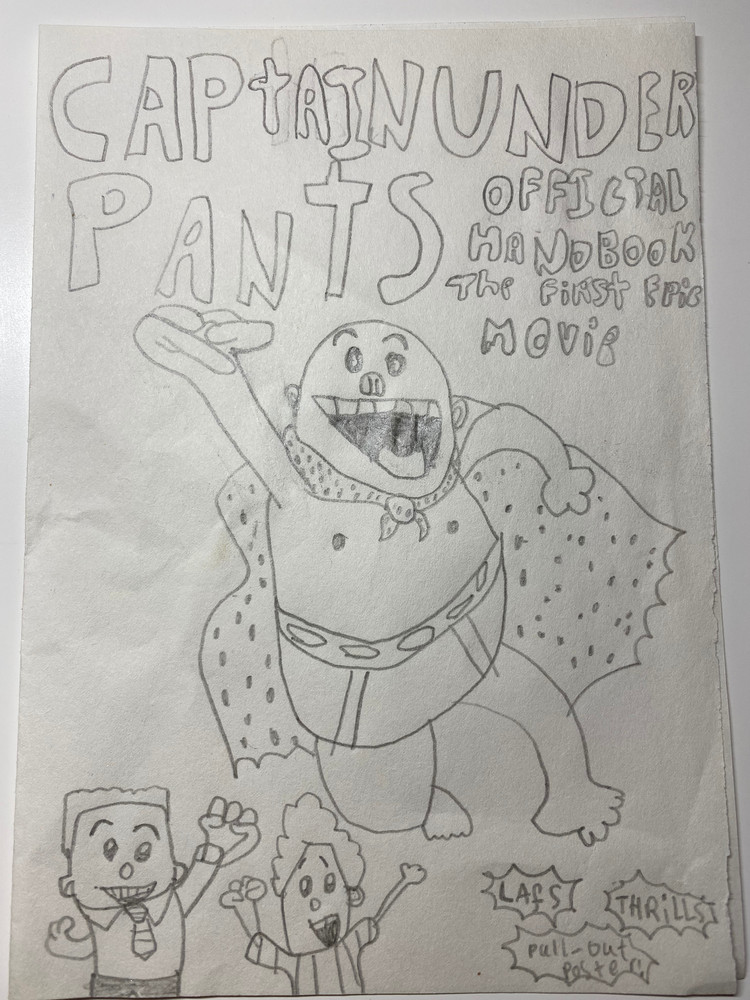 CAPtAIN UNDER
PANTS
OFFICIAL
HANDBOOK
The FiRST EPic
MOViE
LAFS
THRiLLS
pull-out
poster